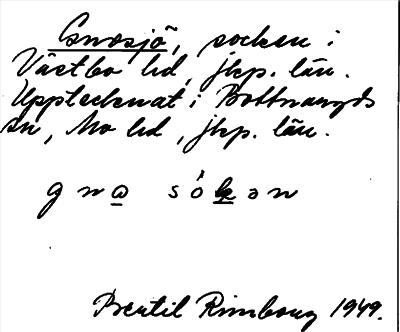 Gnosjö, socken i
Västbo hd, jkp. län.
Upptecknat i Bottnaryds
sn, Mo hd, jkp. län.
gnɷ sókən
Bertil Rimborg 1949.